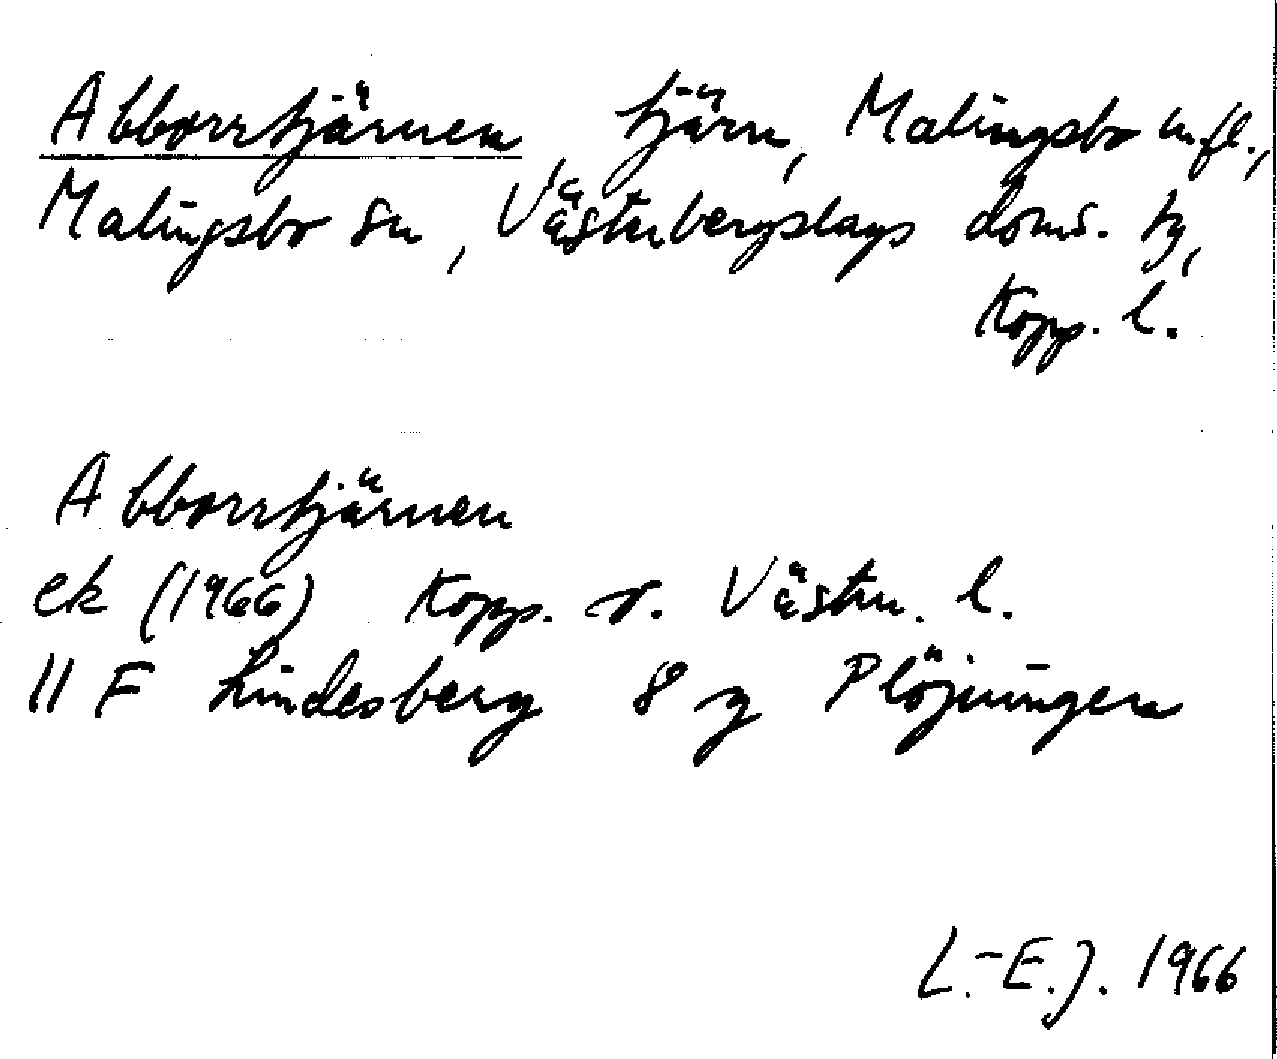 Abborrtjärnen, tjärn, Malingsbo m.fl.,
Malingsbo sn, Västerbergslags doms. tg,
Kopp. l.
Abborrtjärnen
ek (1966) Kopp. o. Västm. l.
11 F Lindesberg 8 g Plöjningen
L.-E.J. 1966